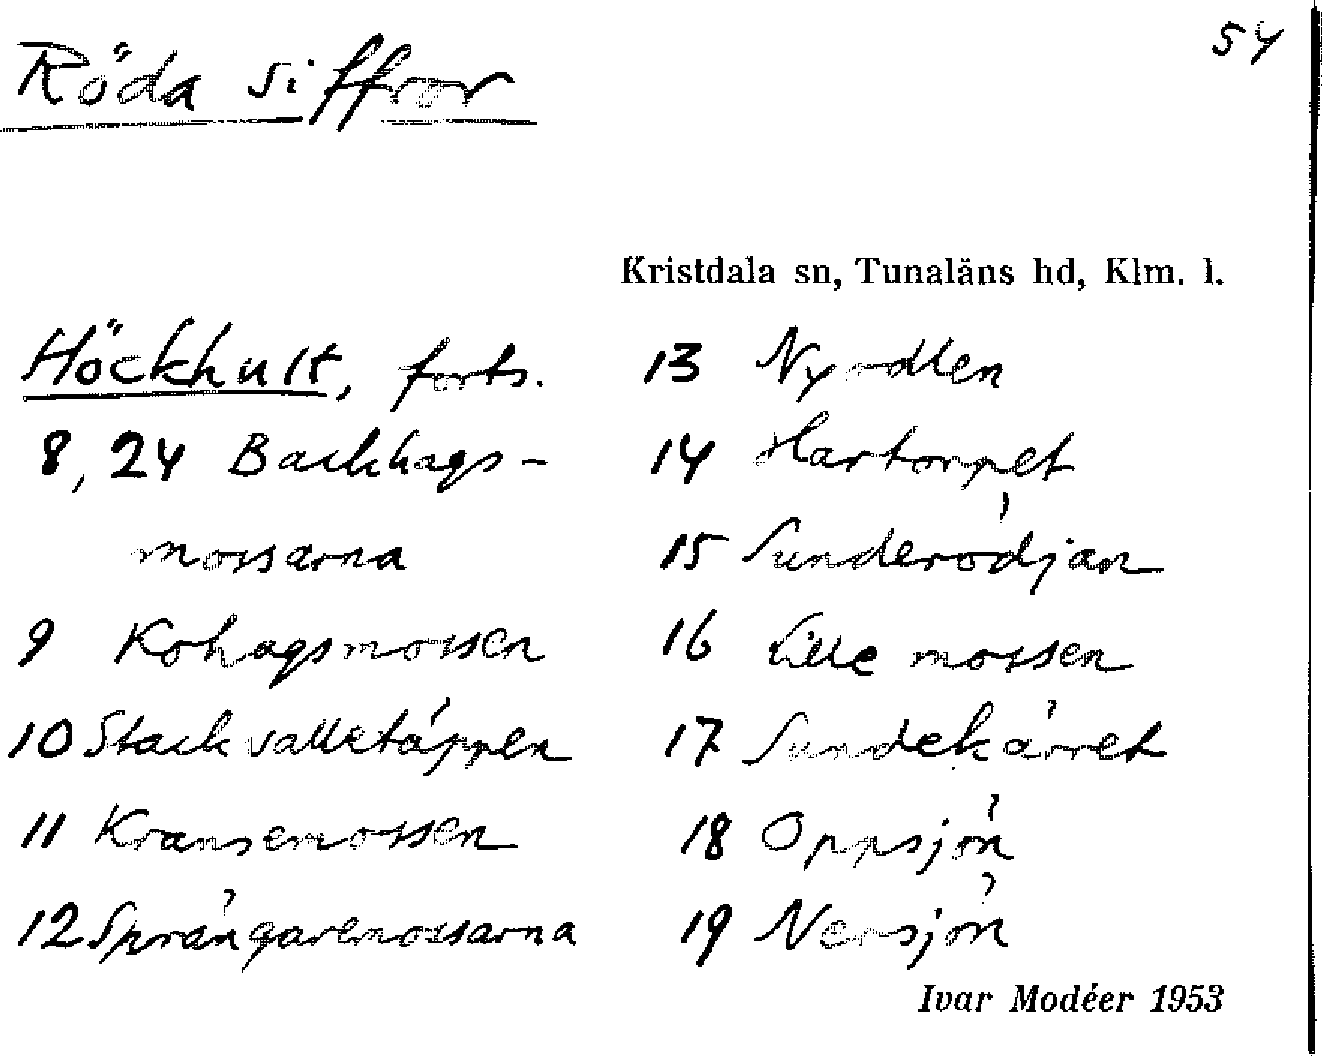 54
Röda siffror
Kristdala sn, Tunaläns hd, Klm. l.
Höckhult, forts.
8, 24 Backhags-
mossarna
9 Kohagsmossen
10 Stackvalletäppen
11 Kransemossen
12 Sprängaremossarna
13 Nyodlen
14 Hartorpet
15 Sunderödjan
16 Lille mossen
17 Sundekärret
18 Oppsjön
19 Nersjön
Ivar Modéer 1953